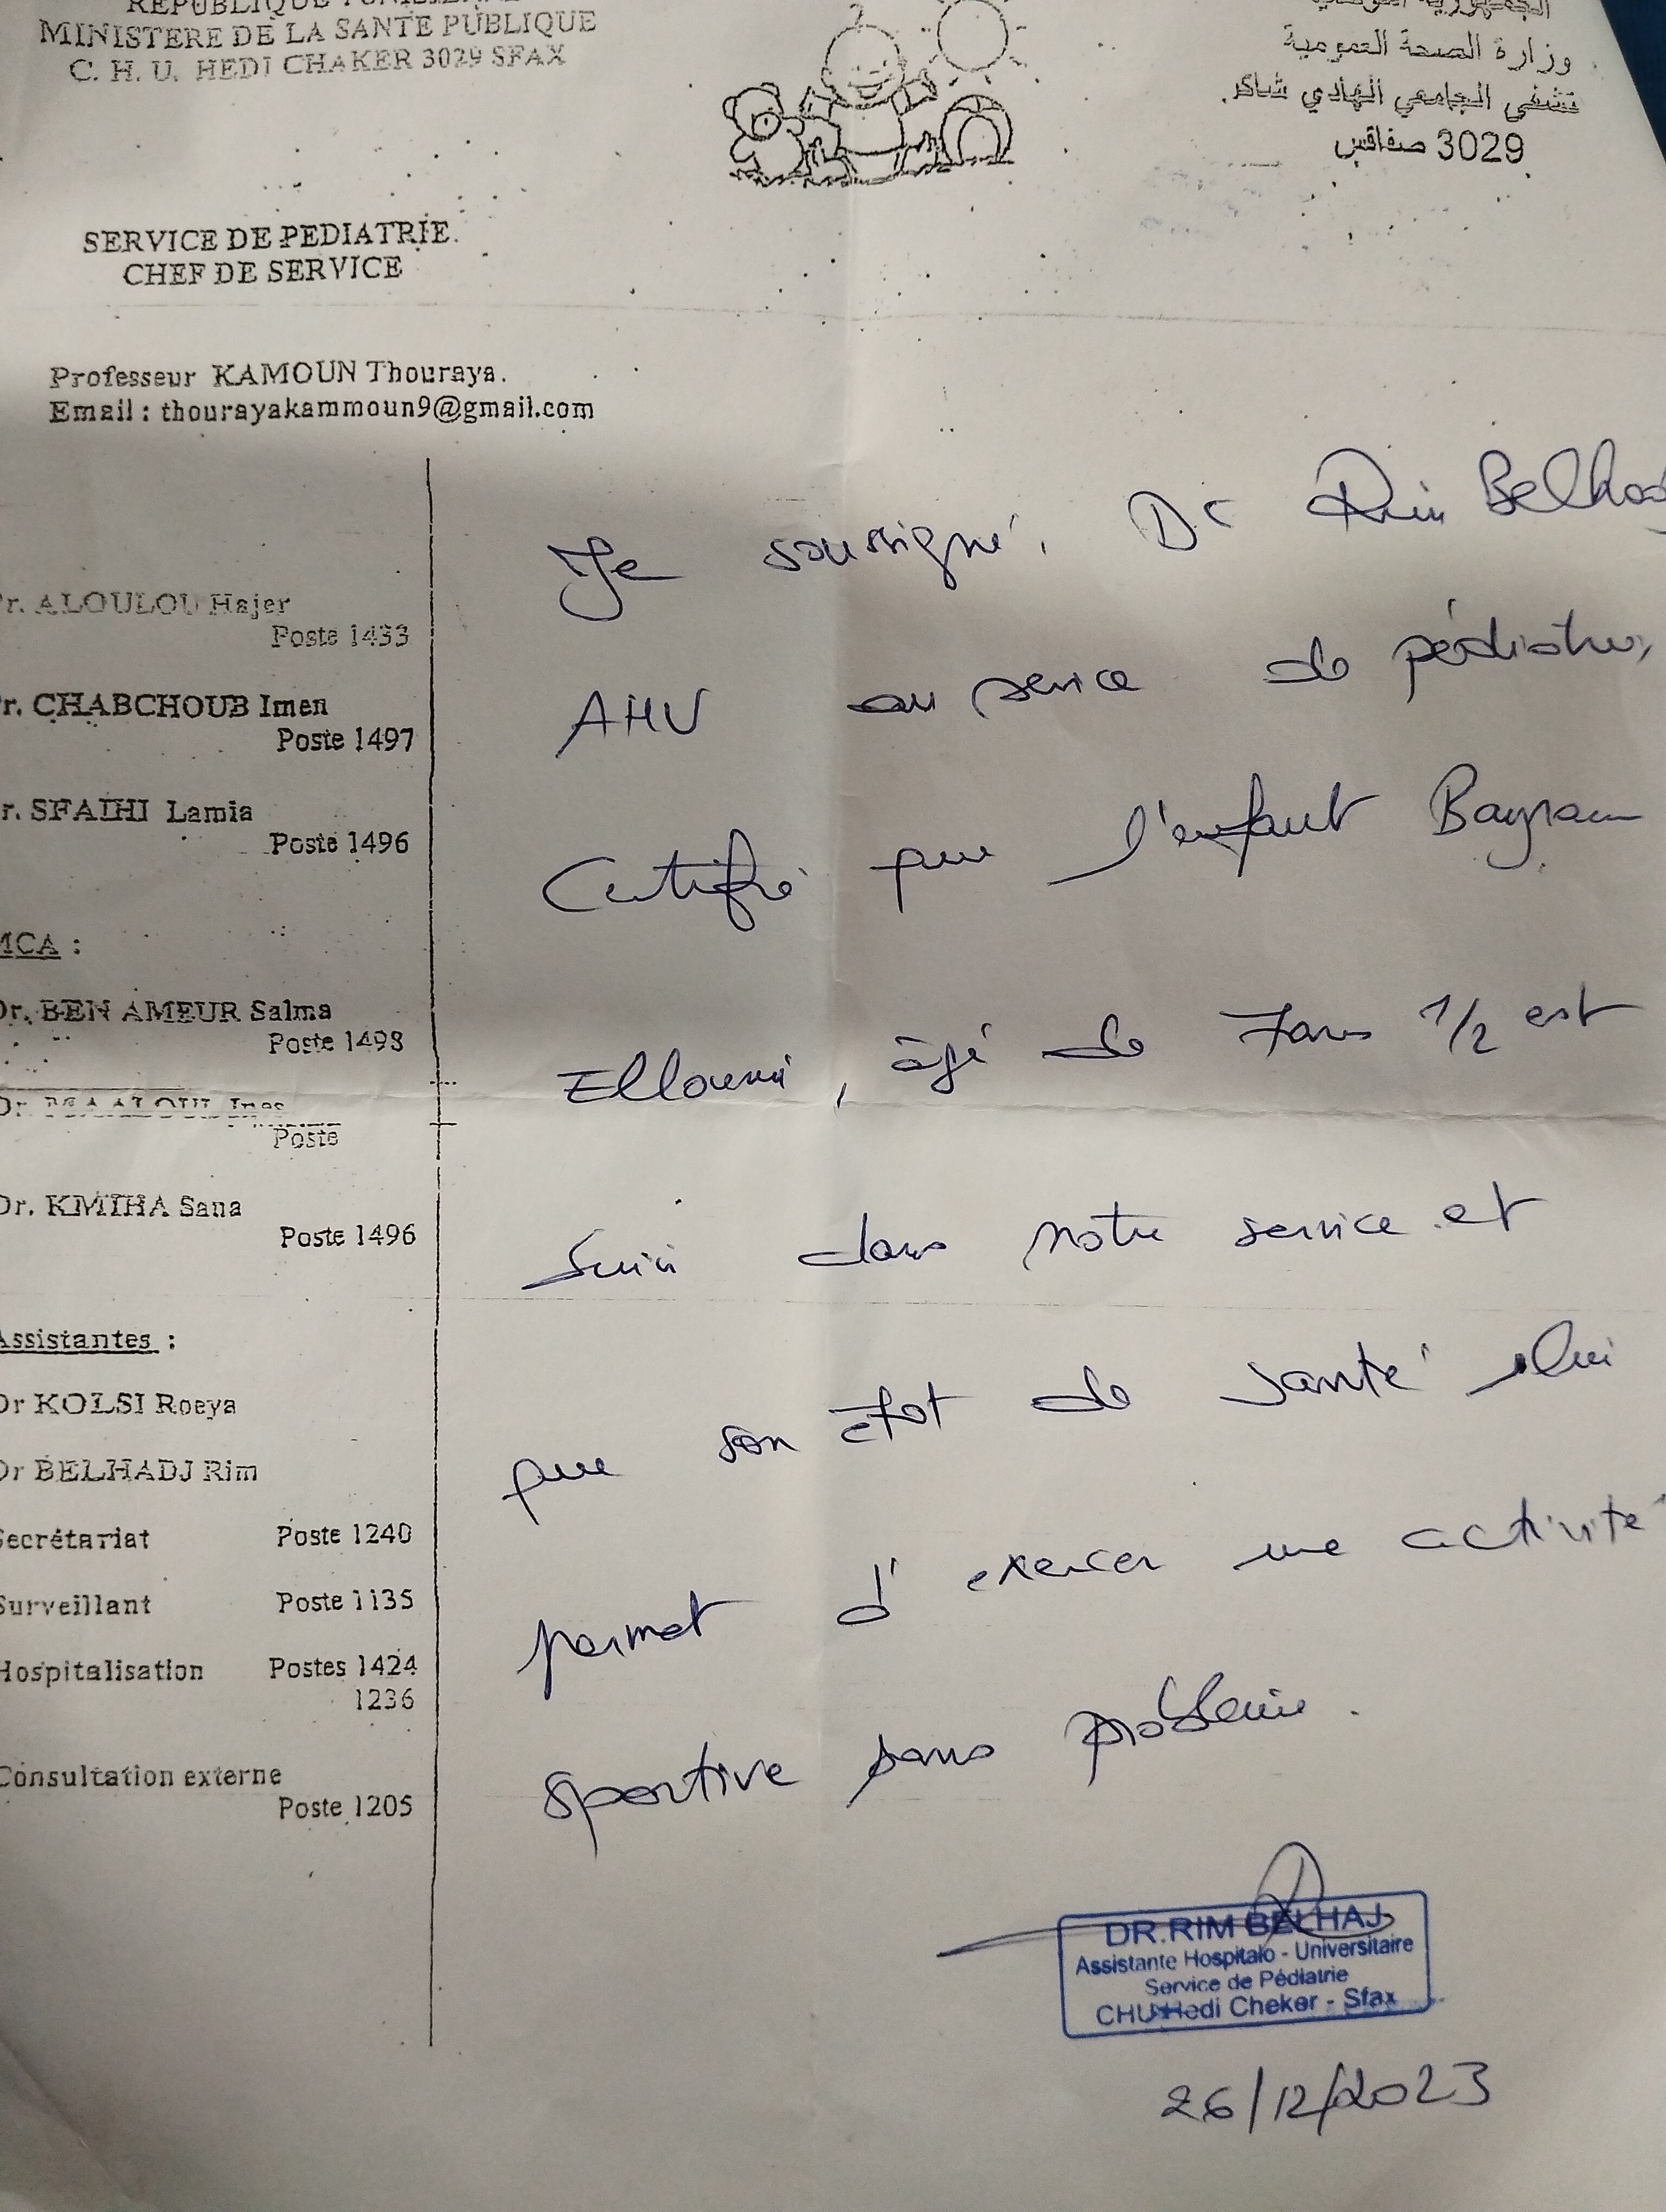 REPUBLIQUE TUNISIENNE
MINISTERE DE LA SANTE PUBLIQUE
C. H. U. HEDI CHAKER 3029 SFAX
وزارة الصحة العمومية
الجامعي الهادي شاكر
3029 صفاقس
SERVICE DE PEDIATRIE.
CHEF DE SERVICE
Professeur KAMOUN Thouraya.
Email : thourayakammoun9@gmail.com
r. ALOULOU Hajer
Poste 1433
r. CHABCHOUB Imen
Poste 1497
r. SFAIHI Lamia
Poste 1496
MCA :
Dr. BEN AMEUR Salma
Poste 1498
Dr.
Poste
Dr. KMIHA Sana
Poste 1496
Assistantes :
Dr KOLSI Roeya
Dr BELHADJ Rim
Secrétariat Poste 1240
Surveillant Poste 1135
Hospitalisation Postes 1424
1236
Consultation externe
Poste 1205
Je soussigné, Dr Rim Belhadj
AHU au service de pédiatrie,
Certifie que l'enfant Bayram
Elloumi, âgé de 7 ans 1/2 est
Suivi dans notre service et
que son état de santé lui
permet d'exercer une activité
sportive sans problème.
DR.RIM BELHAJ
Assistante Hospitalo - Universitaire
Service de Pédiatrie
CHU Hedi Cheker - Sfax
26/12/2023